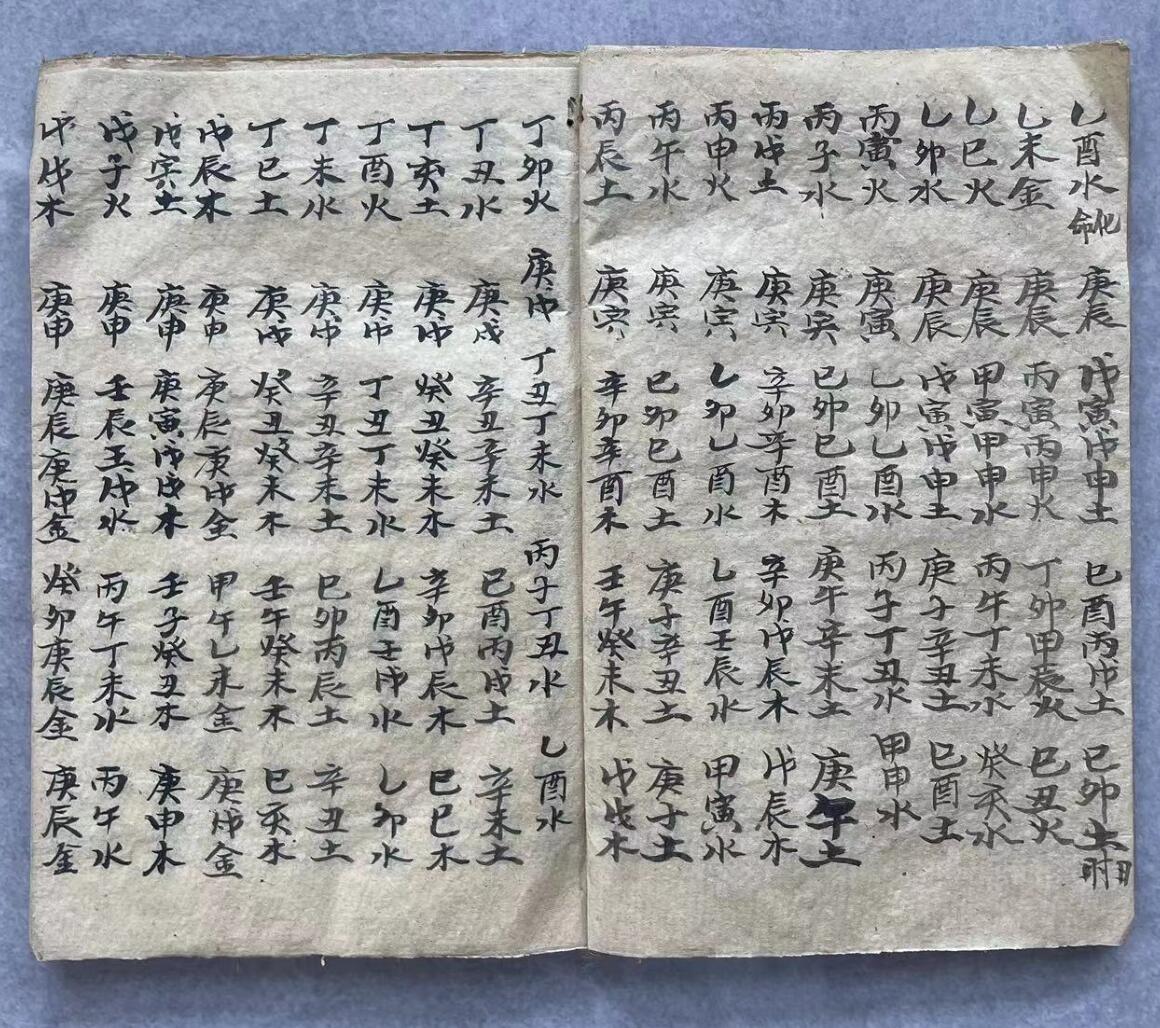 乙酉水化命 庚辰 戊寅戊申土 己酉丙戌土 己卯土日时
乙未金 庚辰 丙寅丙申火 丁卯甲辰火 己丑火
乙巳火 庚辰 甲寅甲申水 丙午丁未水 癸亥水
乙卯水 庚辰 戊寅戊申土 庚子辛丑土 己酉土
丙寅火 庚寅 乙卯乙酉水 丙子丁丑水 甲申水
丙子水 庚寅 己卯己酉土 庚午辛未土 庚午土
丙戌土 庚寅 辛卯辛酉木 辛卯戊辰木 戊辰木
丙申火 庚寅 乙卯乙酉水 乙酉壬辰水 甲寅水
丙午水 庚寅 己卯己酉土 庚子辛丑土 庚子土
丙辰土 庚寅 辛卯辛酉木 壬午癸未木 戊戌木
丁卯火 庚戌 丁丑丁未水 丙子丁丑水 乙酉水
丁丑水 庚戌 辛丑辛未土 己酉丙戌土 辛未土
丁亥土 庚戌 癸丑癸未木 辛卯戊辰木 己巳木
丁酉火 庚戌 丁丑丁未水 乙酉壬戌水 乙卯水
丁未水 庚戌 辛丑辛未土 己卯丙辰土 辛丑土
丁巳土 庚戌 癸丑癸未木 壬午癸未木 己亥木
戊辰木 庚申 庚辰庚戌金 甲午乙未金 庚戌金
戊寅土 庚申 庚寅戊戌木 壬子癸丑木 庚申木
戊子火 庚申 壬辰壬戌水 丙午丁未水 丙午水
戊戌木 庚申 庚辰庚戌金 癸卯庚辰金 庚辰金